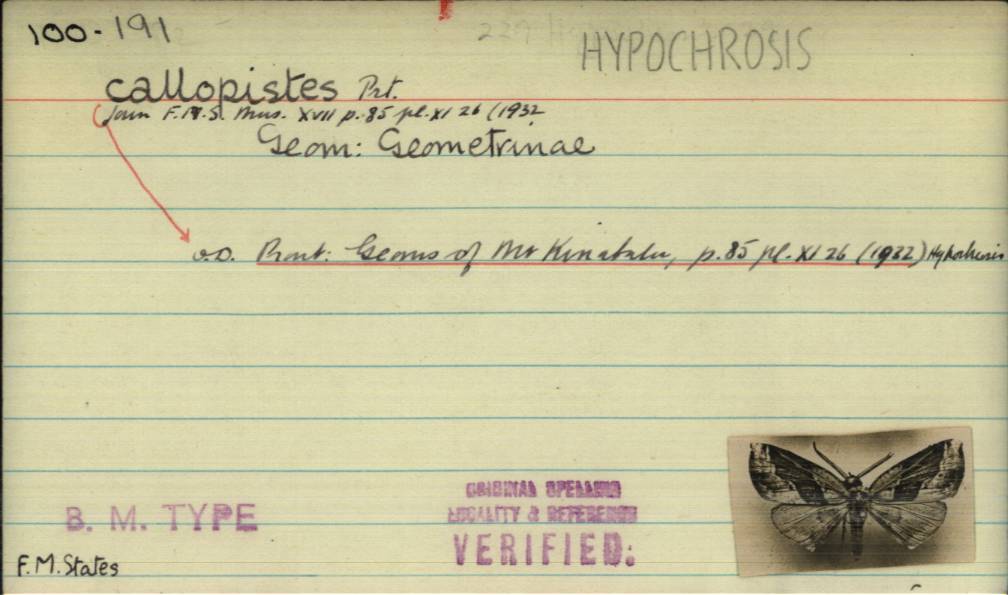 100-191
HYPOCHROSIS
callopistes Prt.
Journ F.M.S. Mus. XVII p. 85 pl. XI 26 (1932
Geom: Geometrinae
o.D. Prout: Geoms of Mt Kinabalu, p. 85 pl. XI 26 (1932) Hypochrosis
B. M. TYPE
ORIGINAL SPELLING
LOCALITY & REFERENCE
VERIFIED:
F.M. States